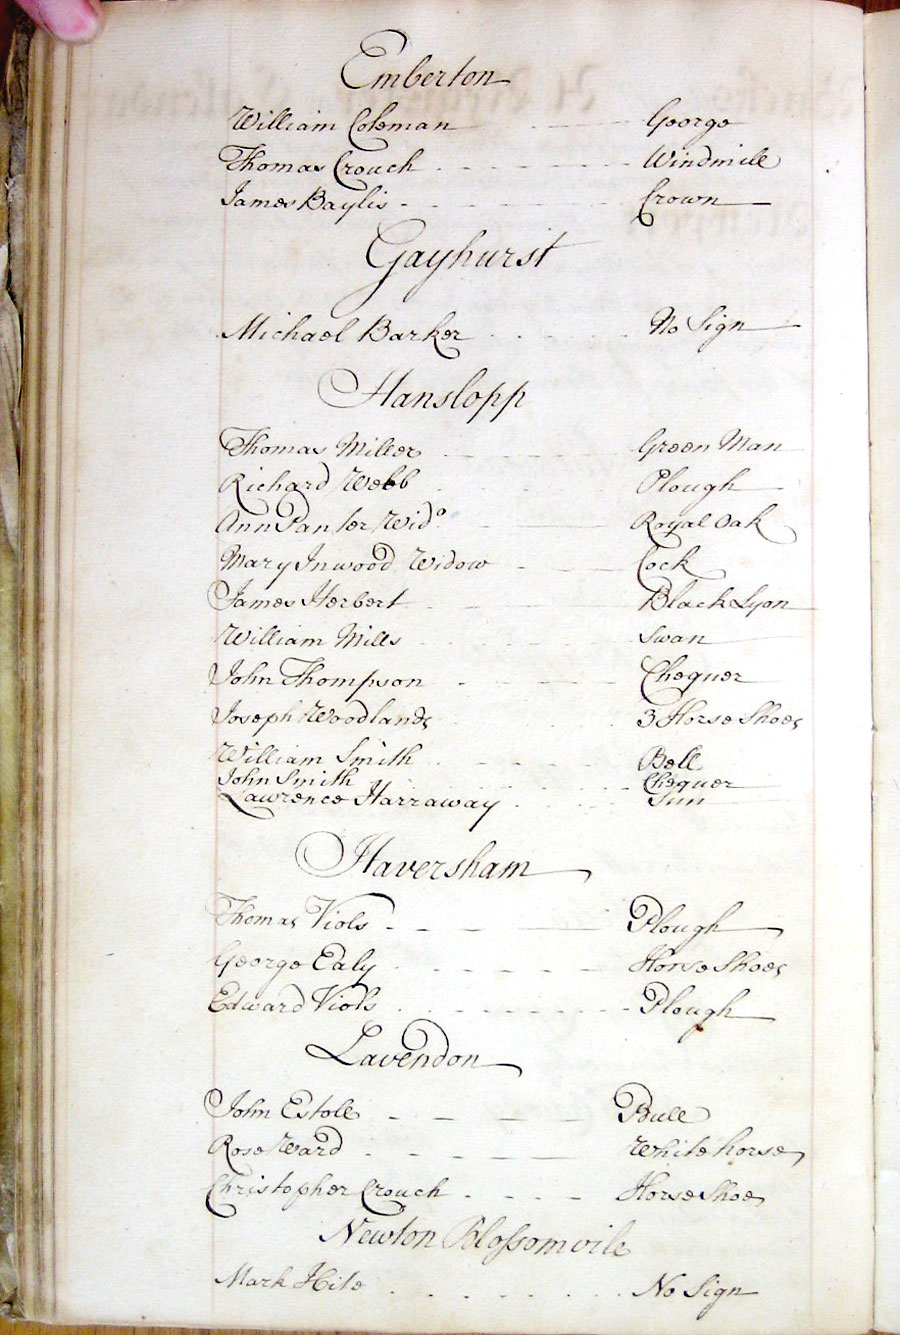 Emberton
William Coleman George
Thomas Crouch Windmill
James Baylis Crown
Gayhurst
Michael Barker No Sign
Hanslopp
Thomas Miller Green Man
Richard Webb Plough
Ann Panter Wido Royal Oak
Mary Inwood Widow Cock
James Herbert Black Lyon
William Mills Swan
John Thompson Chequer
Joseph Woodlands 3 Horse Shoes
William Smith Bell
John Smith Chequer
Lawrence Harraway Sun
Haversham
Thomas Viols Plough
George Ealy Horse Shoes
Edward Viols Plough
Lavendon
John Estoll Bull
Rose Ward White horse
Christopher Crouch Horse Shoe
Newton Blossomvile
Mark Hile No Sign